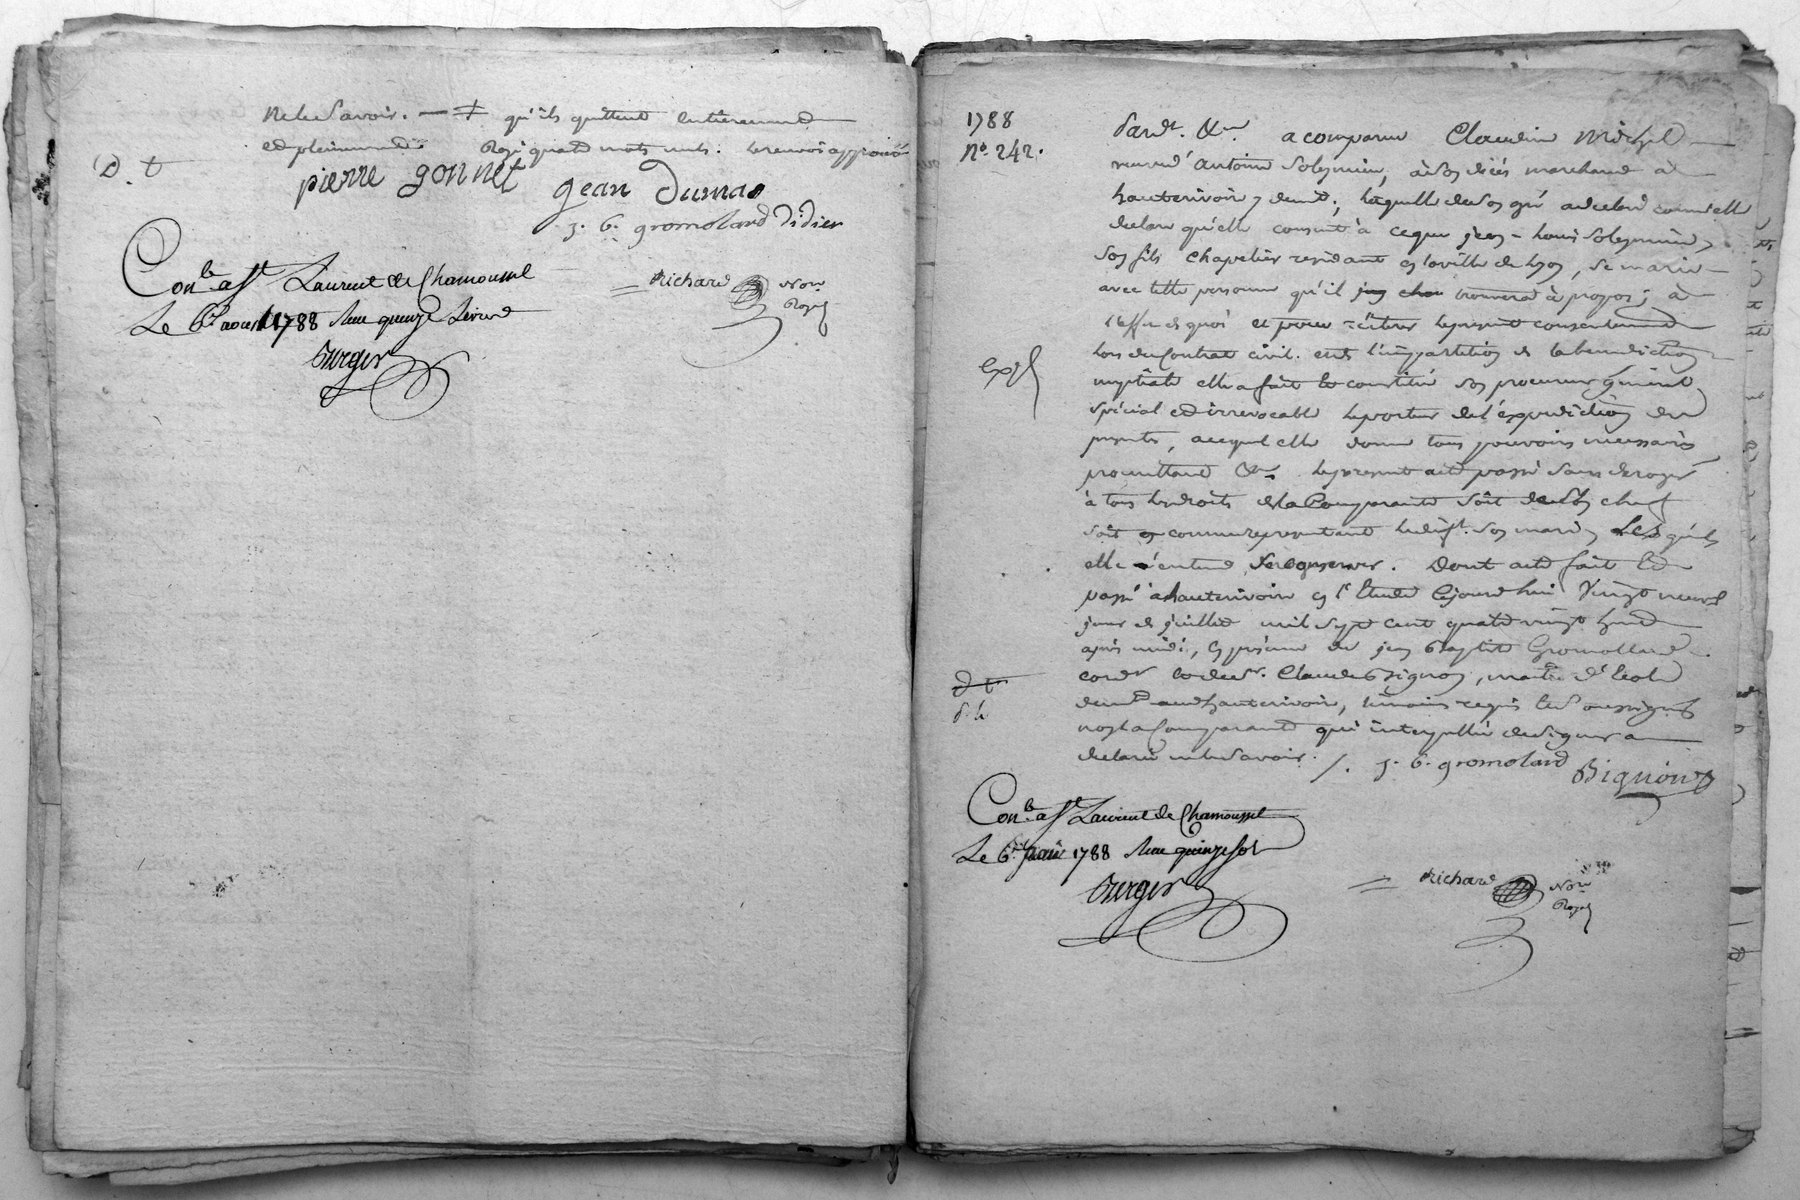 ne le savoir. — ‡ qu'ils quittent entierement
et pleinement quatre mots nuls. le renvoi approuvé
D. t
pierre gonnet
jean Dumas
J. B. gromolard Didier
Con.lé a St Laurent de Chamousset
Richard Nore
Royal
Le 6 aoust 1788 Recu quinze
Berger
1788
No. 242.
Pardt. &re a comparu Claudine Michel
veuve d'antoine Solesmieu, à Son décès marchand à
hauterivoire y demt, laquelle de Son gré a declaré comme elle
declare qu'elle consent à ce que jean-Louis Solesmieu
Son fils chapelier residant en la ville de Lyon, se marie
avec telle personne qu'il trouvera à propos; à
l'effet de quoi et pour réiterer le present consentement
lors du Contrat civil et l'impartition de la benediction
nuptiale elle a fait et constitué Son procureur général,
Spécial et irrevocable le porteur de l'expedition des
presentes, auquel elle donne tous pouvoirs necessaires
promettant &re le present acte passé Sans deroger
à tous les droits de la Comparante soit de Son chef
soit comme representant led. deft. Son mari, Lesquels
elle entend Se reserver. Dont acte fait et
passé à hauterivoire en l'Etude Cejourdhui Vingt neuf
jour de juillet mil Sept cent quatre vingt huit
après midi, en présence de jean Baptiste Gromollard
cordr et de Sr. Claude Bignon, maitre d'Ecole
demt aud hauterivoire, temoins requis et Soussignés
non la Comparante qui interpellée de Signer a
declaré ne le Savoir. /. J. B. gromolard Bignon
expé
d t
Con.lé a St Laurent de Chamousset
Le 6 1788 Recu quinze sols
Berger
Richard Nore
Royal